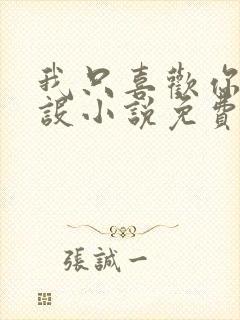 我只喜歡你
設小說免費
張誠一